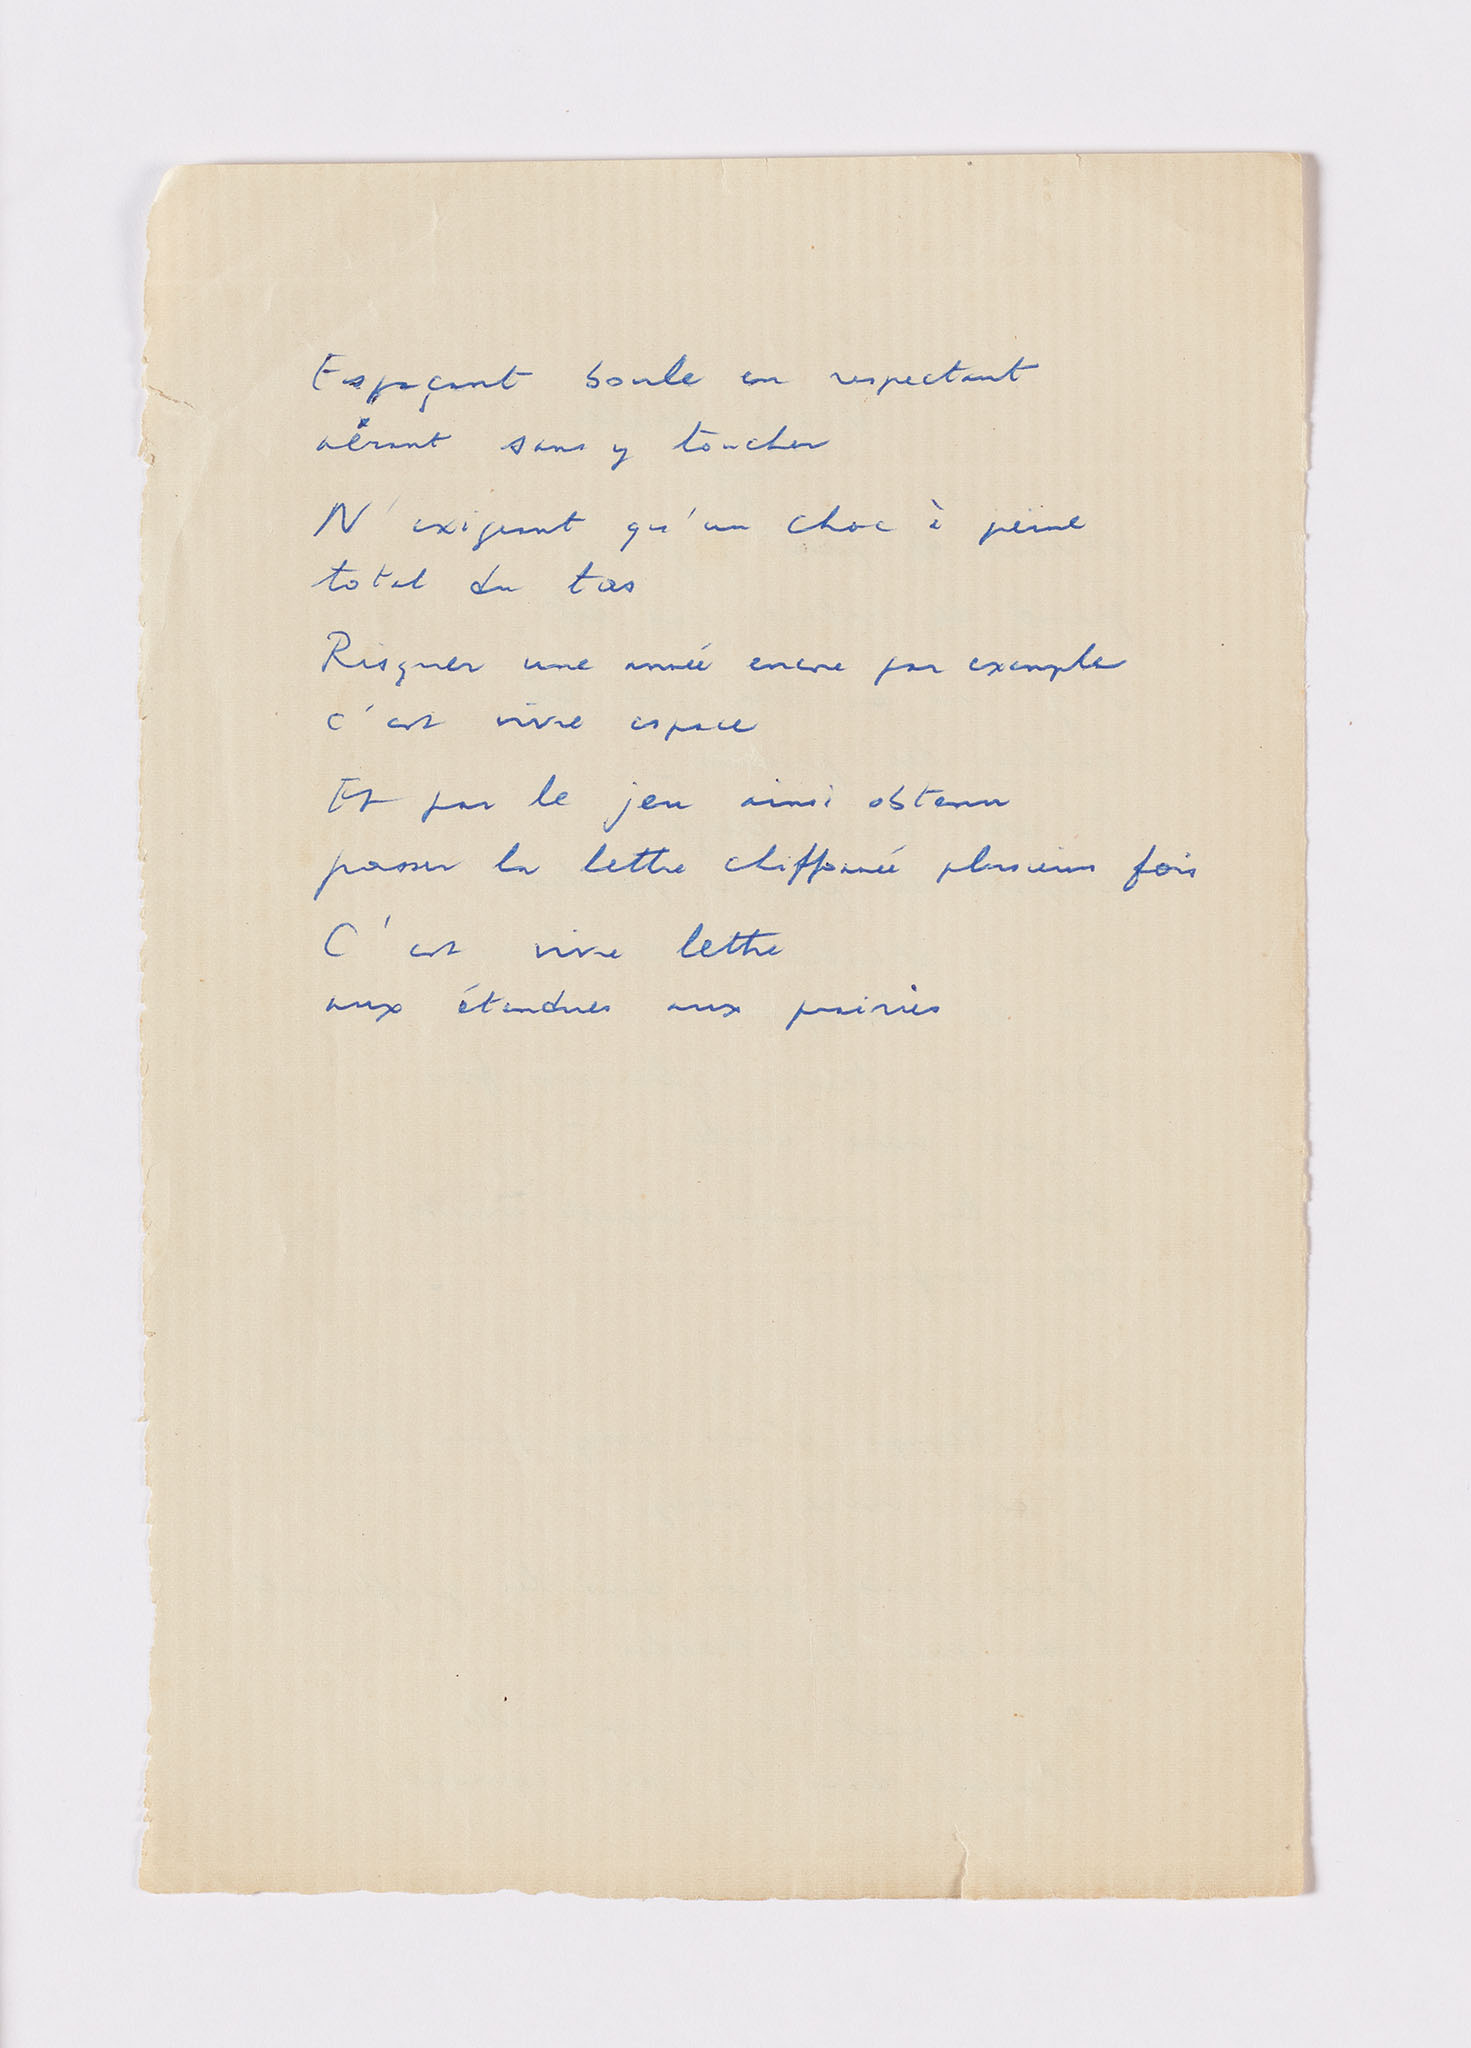 Espaçant boule en respectant
aérant sans y toucher
N'exigeant qu'un choc à peine
total du tas
Risquer une année encore par exemple
c'est vivre espace
Et par le jeu ainsi obtenu
passer la lettre chiffonnée plusieurs fois
C'est vivre lettre
aux étendues aux prairies